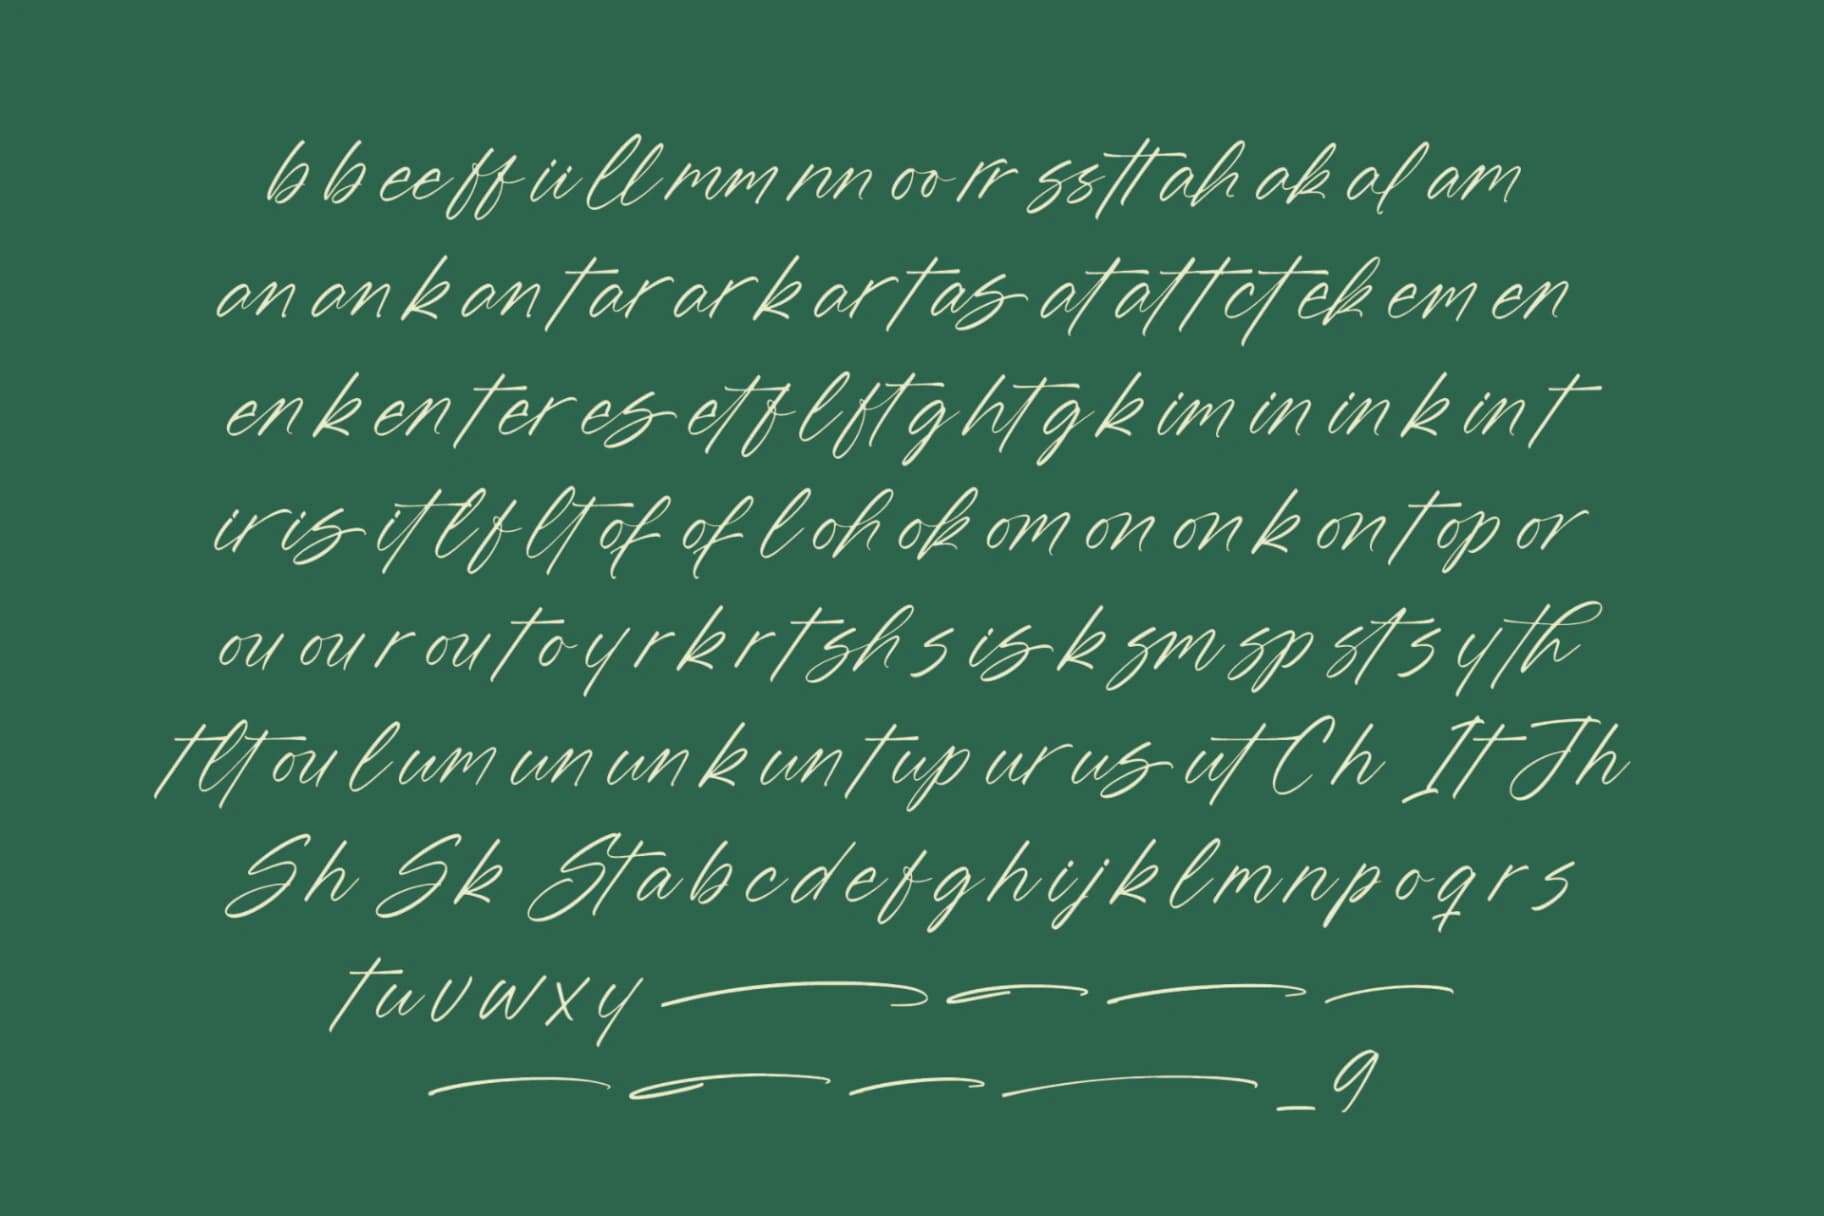 b b ee ff ii ll mm nn oo rr ss tt ah ak al am
an an k an t ar ar k ar t as at at t ct ek em en
en k en t er es et f l ft g ht g k im in in k in t
ir is it lf lt of of l oh ok om on on k on t op or
ou ou r ou t oy r k r t sh s is k sm sp st s y th
t lt ou l um un un k un t up ur us ut Ch It Th
Sh Sk St a b c d e f g h i j k l m n p o q r s
t u v w x y
_ 9